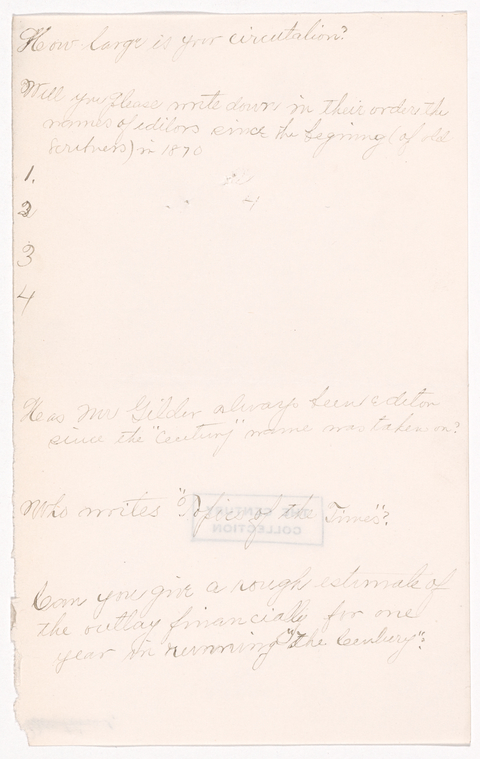 How large is your circutalion?
Will you please write down in their order the
names of editors since the begining (of old
Scribners) in 1870
1.
2
4
3
4
Has Mr Gilder always been editor
since the "Century" name was taken on?
Who writes "Topics of the Times"?
THE CENTURY
COLLECTION
Can you give a rough estimate of
the outlay financially for one
year in running "the Century"?